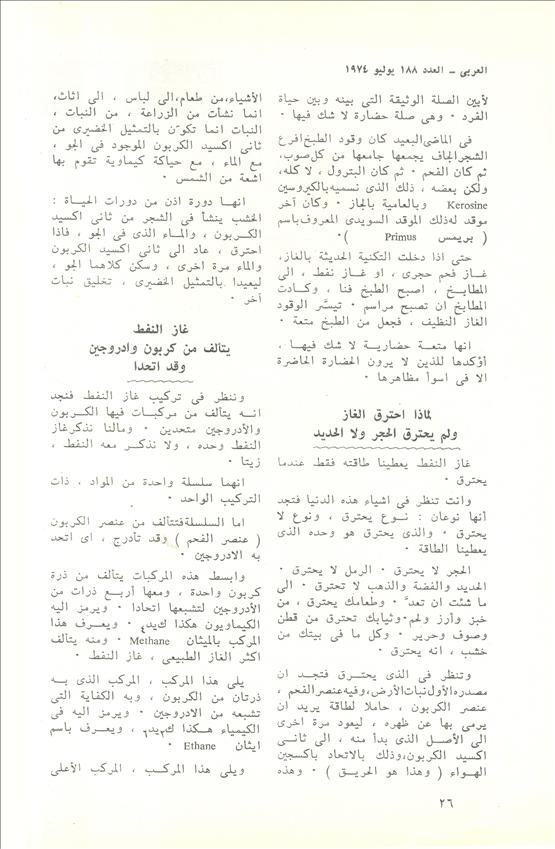 العربى ـ العدد ١٨٨ يوليو ١٩٧٤
لأبين الصلة الوثيقة التى بينه وبين حياة
الفرد ٠ وهى صلة حضارة لا شك فيها ٠
فى الماضى البعيد كان وقود الطبخ افرع
الشجر الجاف يجمعها جامعها من كل صوب،
ثم كان الفحم ٠ ثم كان البترول ، لا كله،
ولكن بعضه ، ذلك الذى نسميه بالكيروسين
Kerosine وبالعامية بالجاز ٠ وكان آخر
موقد له ذلك الموقد السويدى المعروف باسم
( بريمس Primus ) ٠
حتى اذا دخلت التكنية الحديثة بالغاز،
غـاز فحم حجرى ، او غـاز نفط ، الى
المطابـخ ، اصبح الطبخ فنا ، وكـادت
المطابخ ان تصبح مراسم ٠ تيسَّر الوقود
الغاز النظيف ، فجعل من الطبخ متعة ٠
انها متعـة حضاريـة لا شك فيهـا ،
أؤكدها للذين لا يرون الحضارة الحاضرة
الا فى اسوأ مظاهرها ٠
لماذا احترق الغاز
ولم يحترق الحجر ولا الحديد
غاز النفط يعطينا طاقته فقط عندما
يحترق ٠
وانت تنظر فى اشياء هذه الدنيا فتجد
أنها نوعان : نـوع يحترق ، ونوع لا
يحترق ٠ والذى يحترق هو وحده الذى
يعطينا الطاقة ٠
الحجر لا يحترق ٠ الرمل لا يحترق ٠
الحديد والفضة والذهب لا تحترق ٠ الى
ما شئت ان تعدَّ ٠ وطعامك يحترق ، من
خبز وأرز ولحم ٠ وثيابك تحترق من قطن
وصوف وحرير ٠ وكل ما فى بيتك من
خشب ، انه يحترق ٠
وتنظر فى الذى يحتـرق فتجـد ان
مصدره الأول نبات الأرض، وفيه عنصر الفحم ،
عنصر الكربون ، حاملا لطاقة يريد ان
يرمى بها عن ظهره ، ليعود مرة اخرى
الى الأصـل الذى بدأ منه ، الى ثانـى
اكسيد الكربون، وذلك بالاتحاد باكسجين
الهـواء ( وهذا هو الحريـق ) ٠ وهذه
الأشياء، من طعام، الى لباس ، الى اثاث،
انما نشأت من الزراعة ، من النبات ،
النبات انما تكوّن بالتمثيل الخضيرى من
ثانى اكسيد الكربون الموجود فى الجو ،
مع الماء ، مع حياكة كيماوية تقوم بها
اشعة من الشمس ٠
انهـا دورة اذن من دورات الحيـاة :
الخشب ينشأ فى الشجر من ثانى اكسيد
الكـربون ، والمـاء الذى فى الجو ، فاذا
احترق ، عاد الى ثانى اكسيد الكربون
والماء مرة اخرى ، وسكن كلاهما الجو ،
ليعيدا بالتمثيل الخضيرى ، تخليق نبات
آخر ٠
غاز النفط
يتألف من كربون وادروجين
وقد اتحدا
وننظر فى تركيب غاز النفط فنجد
انـه يتألف من مركبـات فيها الكـربون
والأدروجين متحدين ٠ ومالنا نذكر غاز
النفط وحده ، ولا نذكـر معه النفط ،
زيتا ٠
انهما سلسلة واحدة من المواد ، ذات
التركيب الواحد ٠
اما السلسلة فتتألف من عنصر الكربون
( عنصر الفحم ) وقد تأدرج ، اى اتحد
به الادروجين ٠
وابسط هذه المركبات يتألف من ذرة
كربون واحدة ، ومعها أربـع ذرات من
الأدروجين لتشبعها اتحادا ٠ ويرمز اليه
الكيماويون هكذا ك‍يد٤ ٠ ويعـرف هذا
المركب بالميثان Methane ٠ ومنه يتألف
اكثر الغاز الطبيعى ، غاز النفط ٠
يلى هذا المركب ، المركب الذى بـه
ذرتان من الكربون ، وبه الكفاية التى
تشبعه من الادروجين ٠ ويرمز اليه فى
الكيمياء هـكذا ك‍٢يد٦ ، ويعـرف باسم
ايثان Ethane ٠
ويلى هذا المركـب ، المركب الأعلى
٢٦